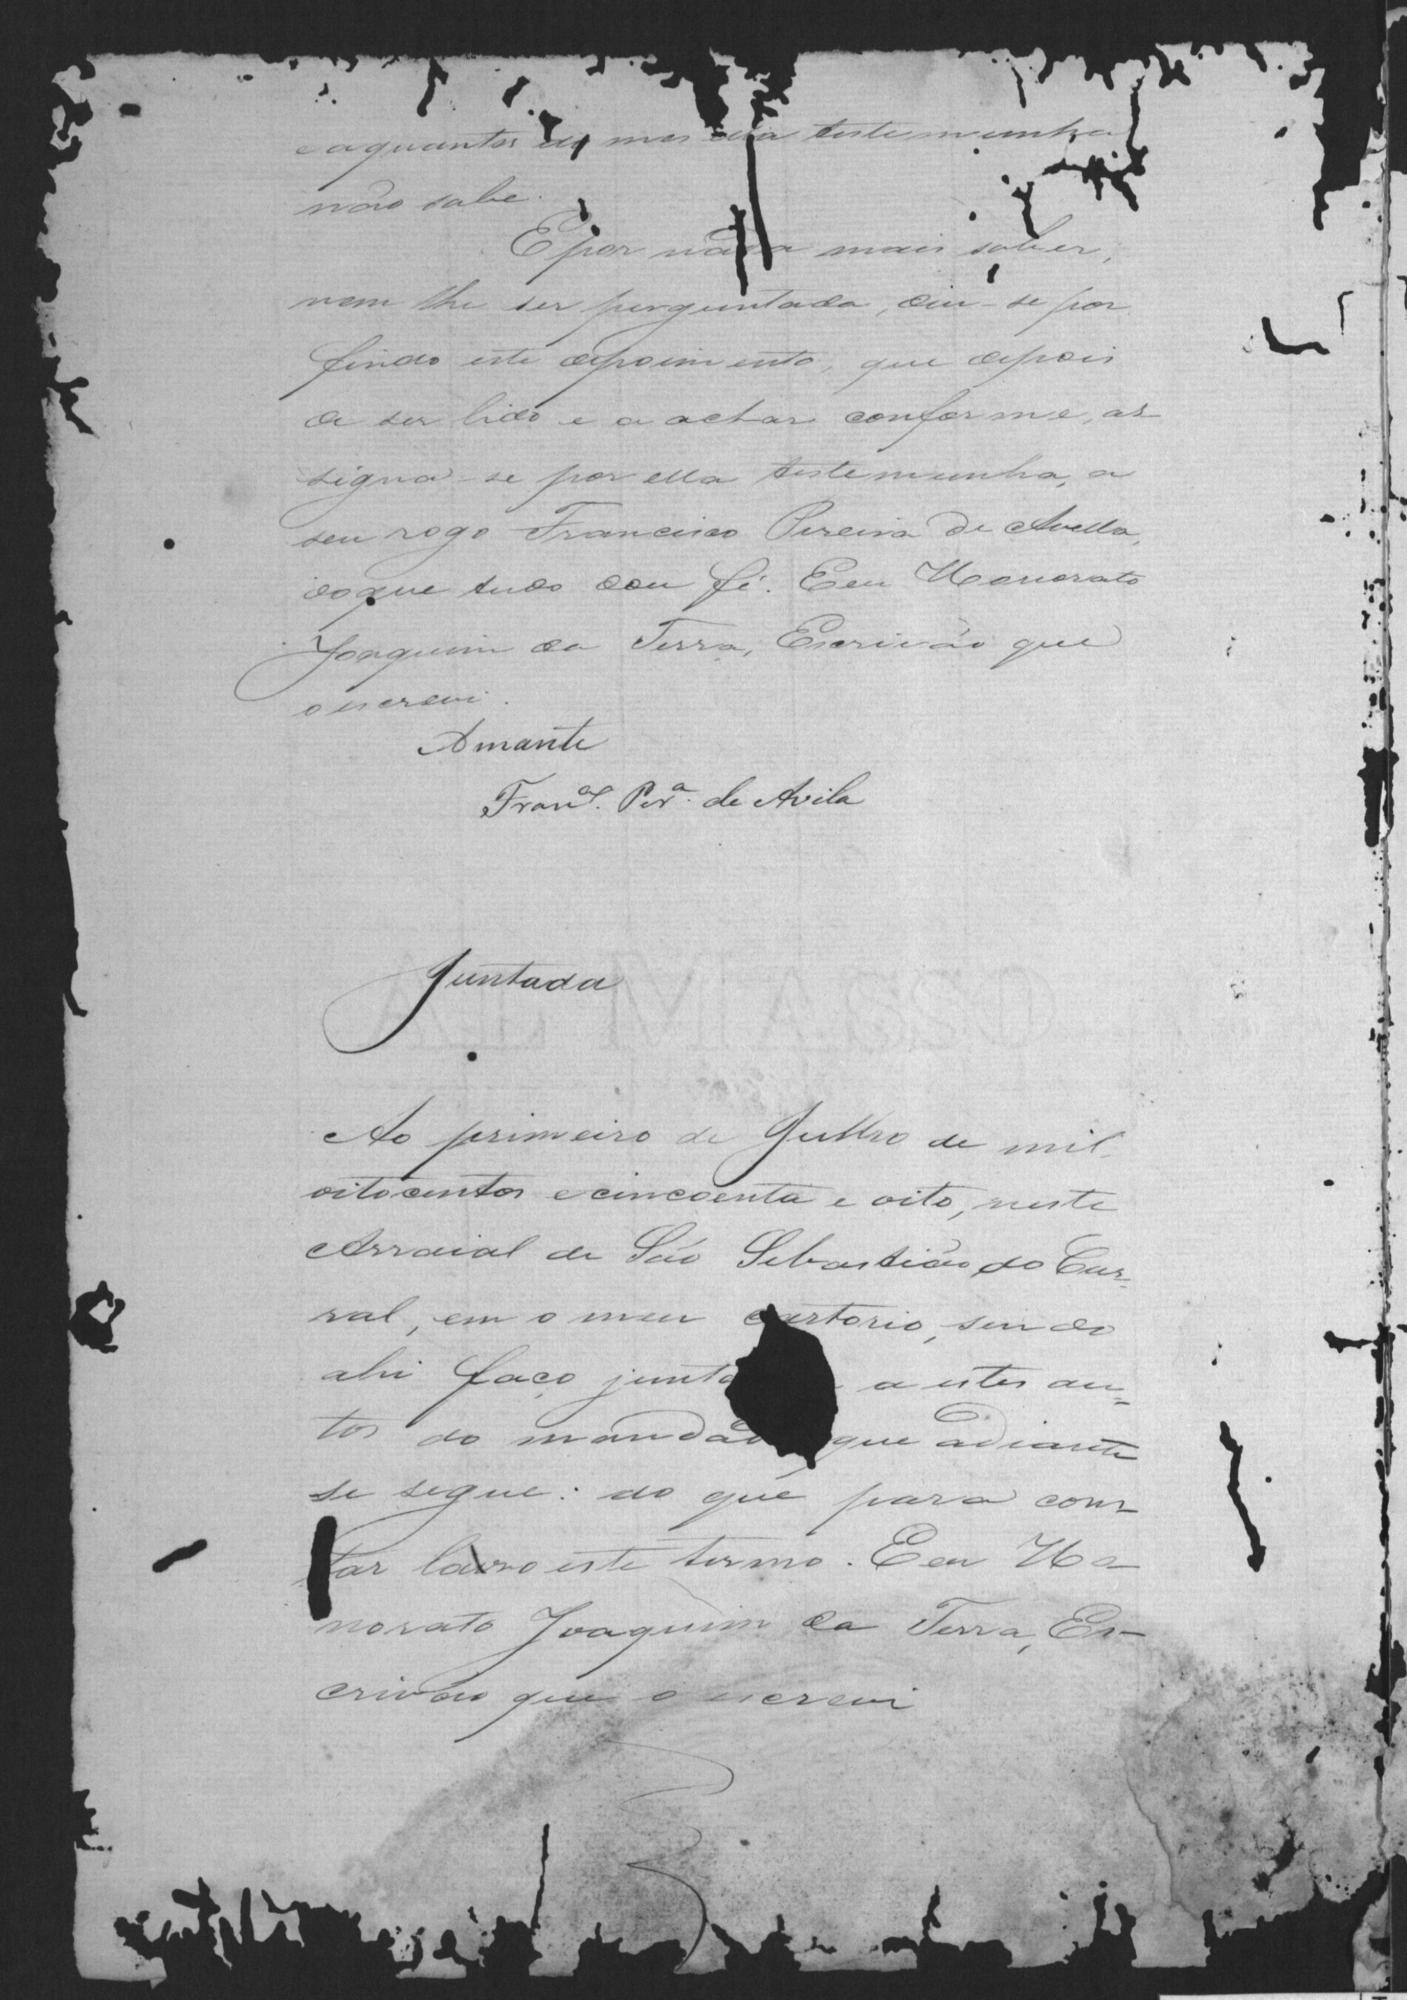 e aquantos do mes dia testemunha
não sabe.
E por nada mais saber,
nem lhe ser perguntada, deu-se por
findo este depoimento, que depois
de ser lido e o achar conforme, as
signa-se por ella testemunha, a
seu rogo Francisco Pereira de Avella,
do que tudo dou fé. E eu Honorato
Joaquim da Terra, Escrivão que
o escrevi.
Amante
Fran.co Per.a de Avila
Juntada
Ao primeiro de Julho de mil
oitocentos e cincoenta e oito, neste
Arraial de São Sebastião do Cur=
ral, em o meu cartorio, sendo
ahi faço junta a estes au=
tos do mandado que adiante
se segue: do que para cons-
tar lavro este termo. E eu Ho-
norato Joaquim da Terra, Es-
crivão que o escrevi